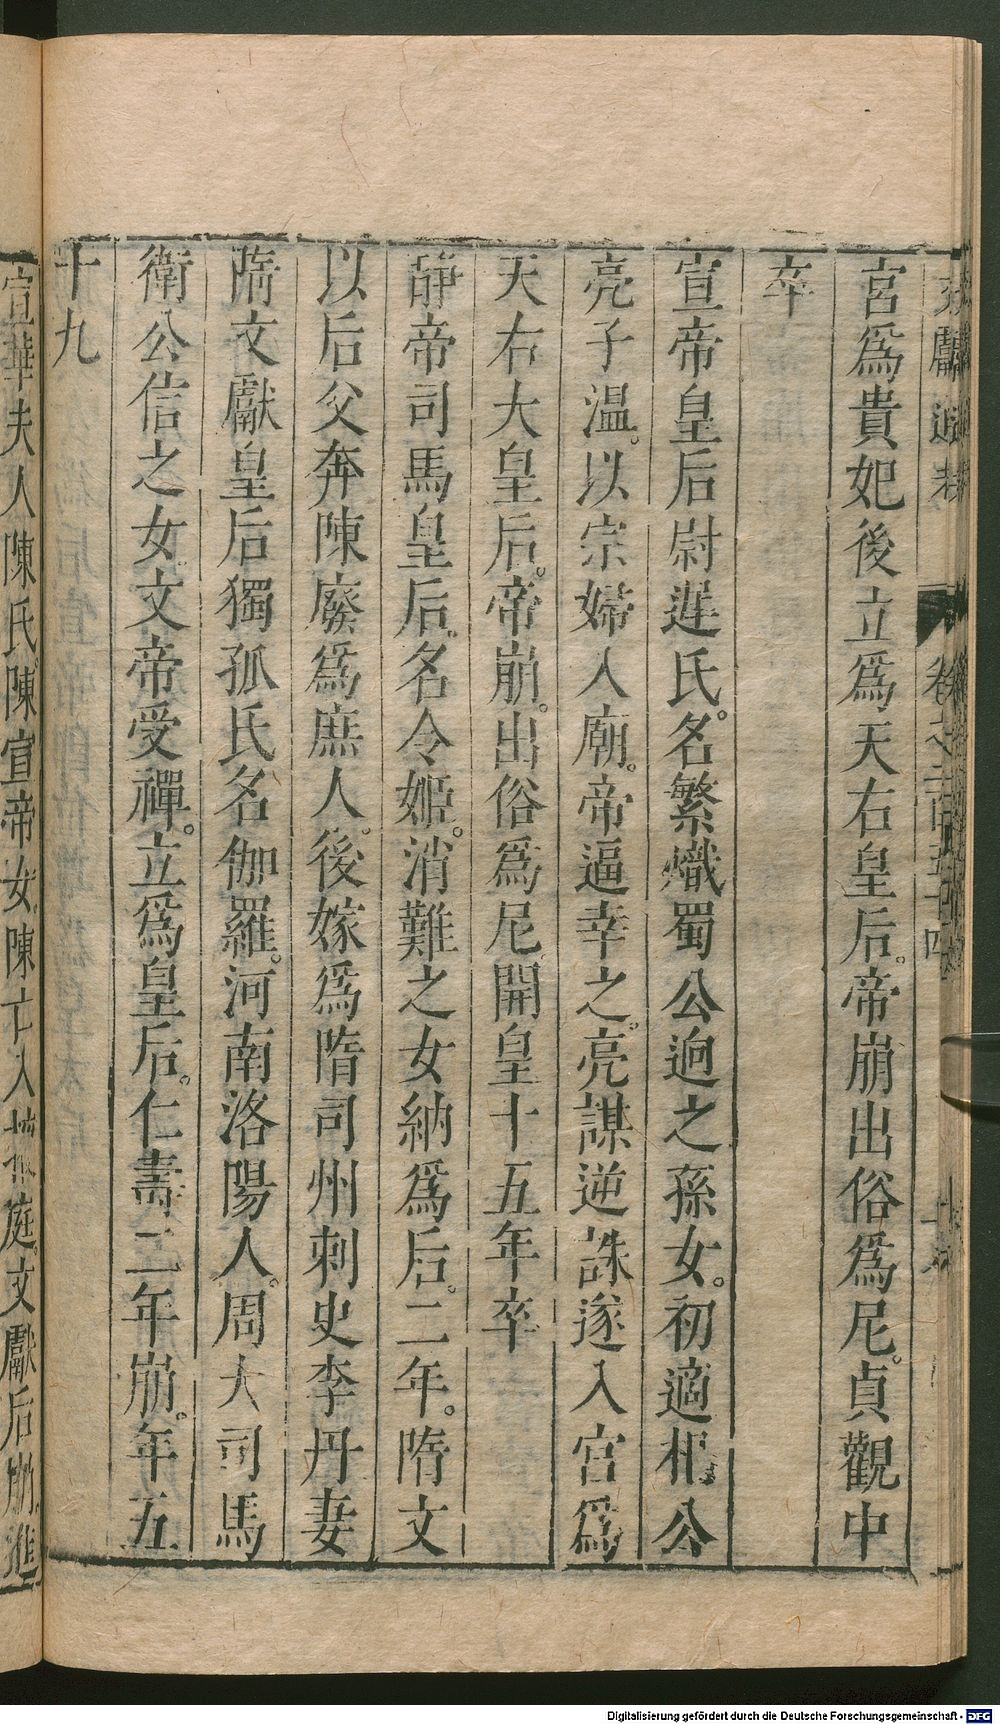 宮爲貴妃後立爲天右皇后帝崩出俗爲尼貞觀中
卒
宣帝皇后尉遲氏名繁熾蜀公迥之孫女初適杞公
亮子温以宗婦入廟帝逼幸之亮謀逆誅遂入宮爲
天右大皇后帝崩出俗爲尼開皇十五年卒
靜帝司馬皇后名令姬消難之女納爲后二年隋文
以后父奔陳廢爲庶人後嫁爲隋司州刺史李丹妻
隋文獻皇后獨孤氏名伽羅河南洛陽人周大司馬
衛公信之女文帝受禪立爲皇后仁壽二年崩年五
十九
宣華夫人陳氏陳宣帝女陳亡入掖庭文獻后崩進
Digitalisierung gefördert durch die Deutsche Forschungsgemeinschaft - DFG